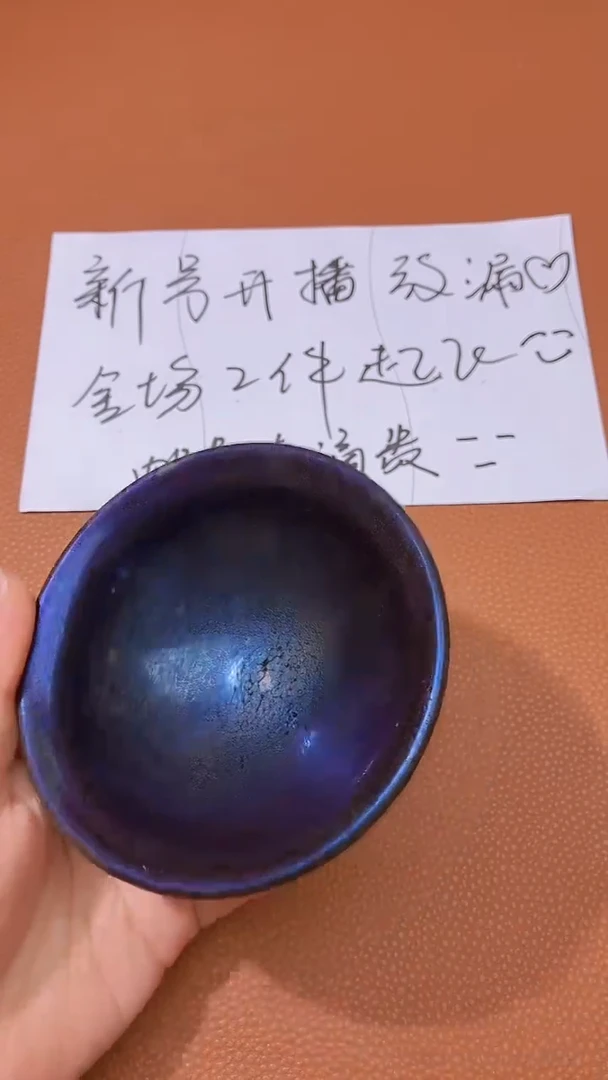 新号开播放漏♡
全场2件起飞
滴发